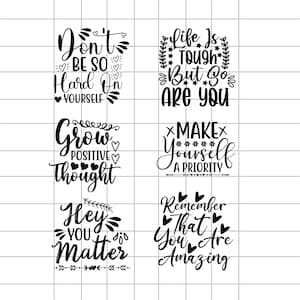 Don't
BE SO
Hard On
YOURSELF
Life Is
TOUGH
But So
ARE YOU
Grow
POSITIVE
Thought
MAKE
Yourself
A PRIORITY
Hey
YOU
Matter
Remember
That
You Are
Amazing